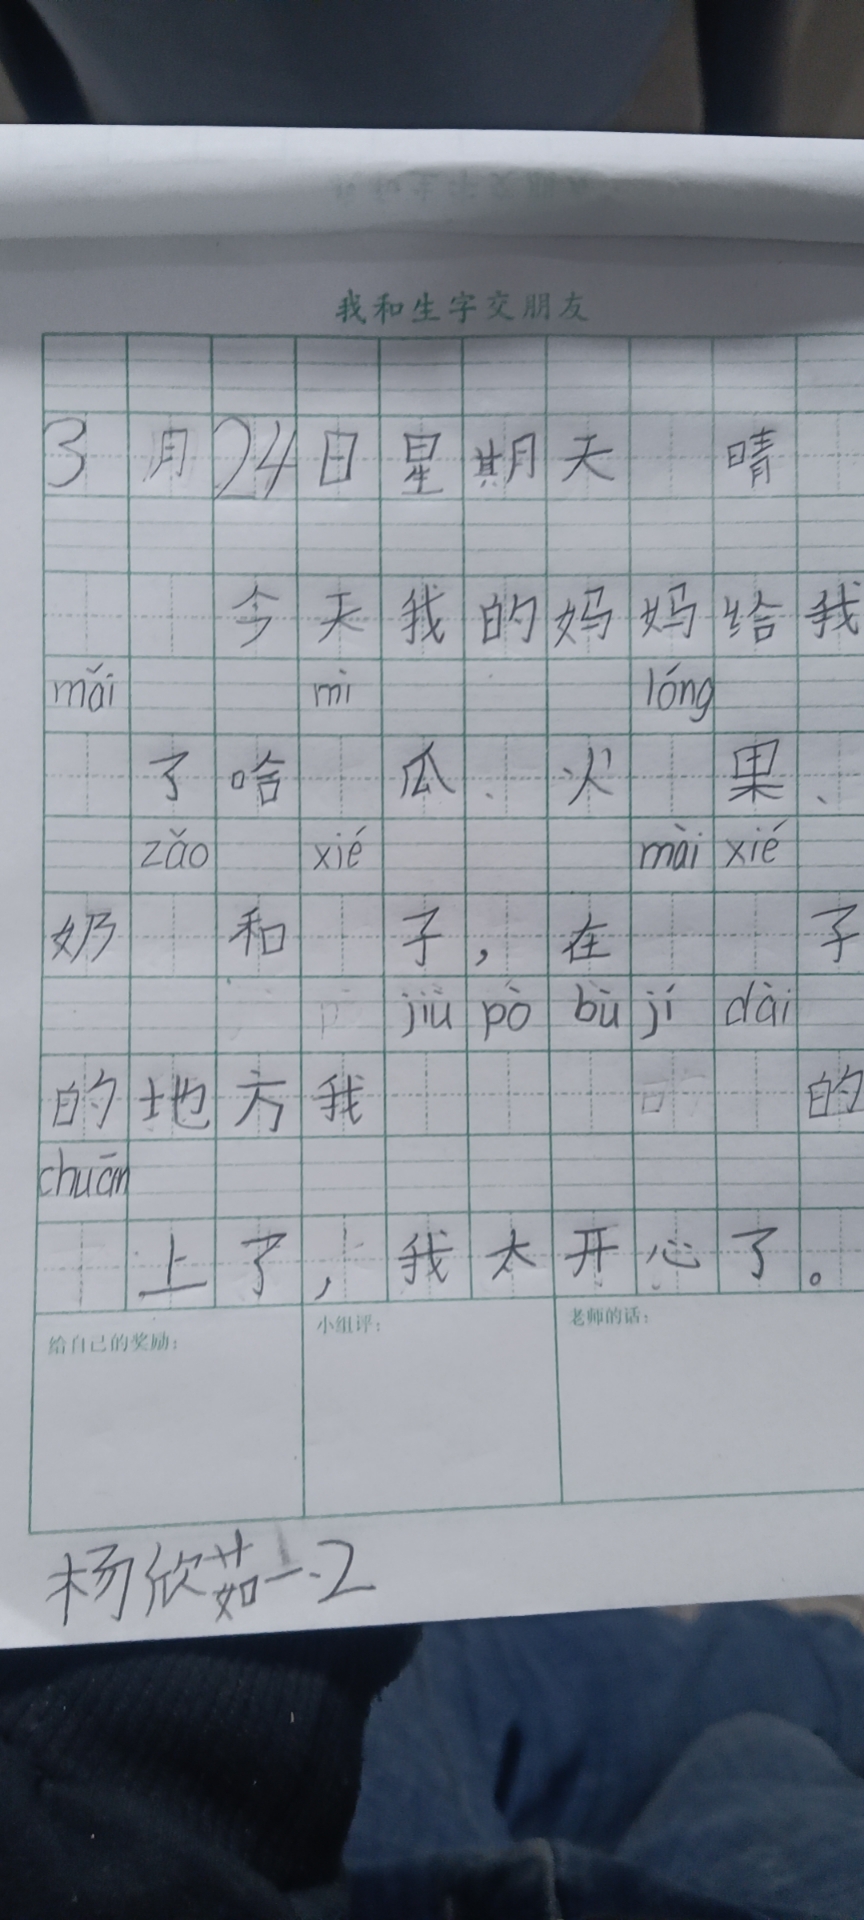 我和生字交朋友
3月24日星期天 晴
今天我的妈妈给我
mǎi mì lóng
了哈 瓜、火 果、
zǎo xié mài xié
奶 和 子，在 子
jiù pò bù jí dài
的地方我 的
chuān
上了，我太开心了。
给自己的奖励： 小组评： 老师的话：
杨欣茹一.2